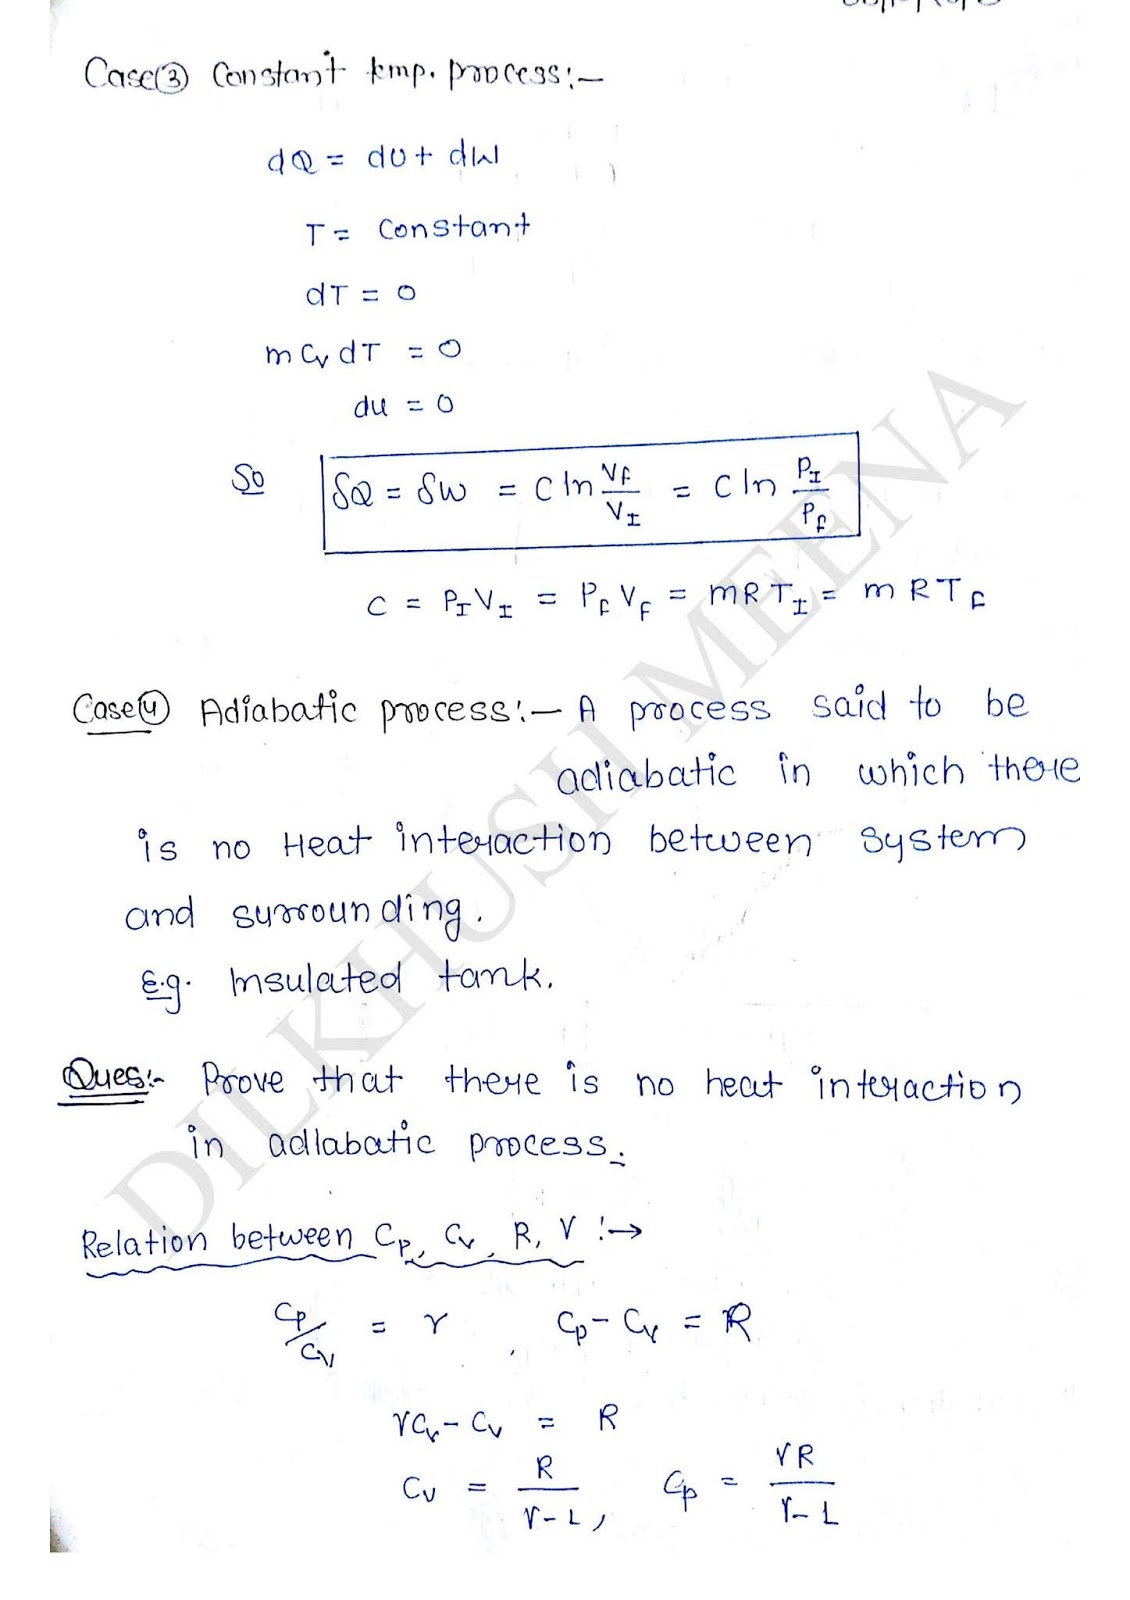 Case③ Constant temp. process:-
dQ = dU + dW
T = Constant
dT = 0
m Cv dT = 0
du = 0
So δQ = δW = C ln Vf/VI = C ln PI/Pf
C = PI VI = Pf Vf = mRTI = mRTf
Case④ Adiabatic process:- A process said to be
adiabatic in which there
is no Heat interaction between system
and surrounding.
E.g. Insulated tank.
Ques:- Prove that there is no heat interaction
in adiabatic process.
Relation between Cp, Cv, R, γ :→
Cp/Cv = γ , Cp - Cv = R
γCv - Cv = R
Cv = R/γ-1, Cp = γR/γ-1
DILKHUSH MEENA